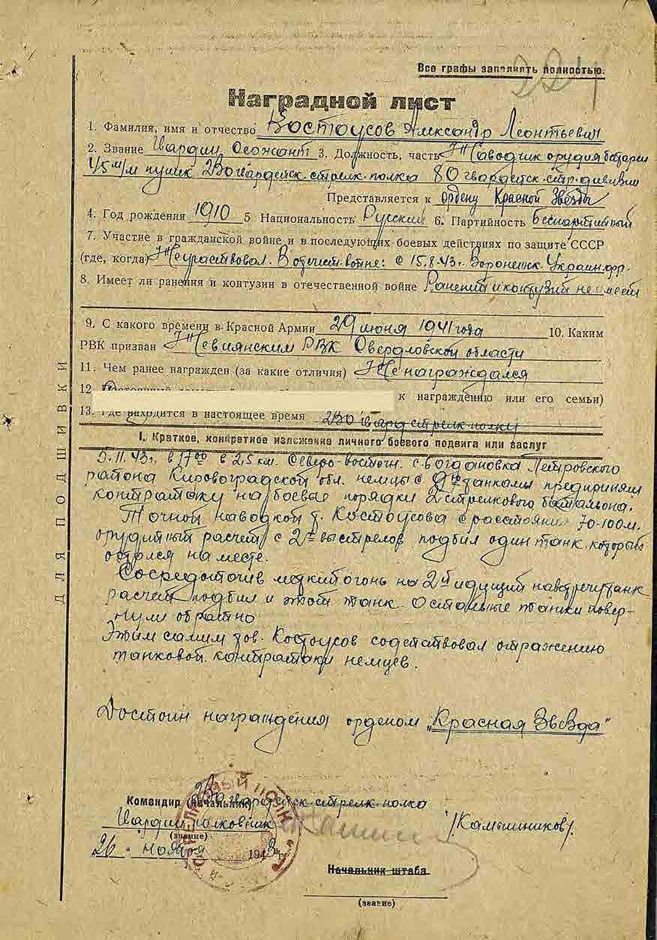 Все графы заполнять полностью.
224
Наградной лист
1. Фамилия, имя и отчество Костоусов Александр Леонтьевич
2. Звание Гвардии Сержант 3. Должность, часть Наводчик орудия батареи
45 м/м пушек 230 гвардейск. стрелк. полка 80 гвардейск. стр. дивизии
Представляется к ордену Красной Звезды
4. Год рождения 1910 5 Национальность Русский 6. Партийность беспартийный
7. Участие в гражданской войне и в последующих боевых действиях по защите СССР
(где, когда) Не участвовал. В отечеств. войне: с 15.8.43г. Воронежск. Украин. фр.
8. Имеет ли ранения и контузии в отечественной войне Ранений и контузий не имеет
9. С какого времени в Красной Армии 29 июня 1941 года 10. Каким
РВК призван Невьянским РВК Свердловской области
11. Чем ранее награжден (за какие отличия) Не награждался
12 к награждению или его семьи)
13. Где находится в настоящее время 230 гвард. стрелк. полку
I. Краткое, конкретное изложение личного боевого подвига или заслуг
5.11.43г. в 17 00 в 2.5 км. Северо-восточн. с. Богдановка Петровского
района Кировоградской обл. немцы с 9ю танками предприняли
контратаку на боевые порядки 2 стрелкового батальона.
Точной наводкой т. Костоусова с расстояния 70-100м.
орудийный расчет с 2х выстрелов подбил один танк, который
остался на месте.
Сосредоточив меткий огонь на 2й идущий навстречу танк
расчет подбил и этот танк. Остальные танки повер-
нули обратно
Этим самим тов. Костоусов содствовал отражению
танковой контратаки немцев.
Достоин награждения орденом „Красная Звезда"
Командир (начальник) 230 гвардейск. стрелк. полка
Гвардии полковник /Камышников/.
(звание)
26 ноября 1943г.
Начальник штаба
(звание)
ДЛЯ ПОДШИВКИ